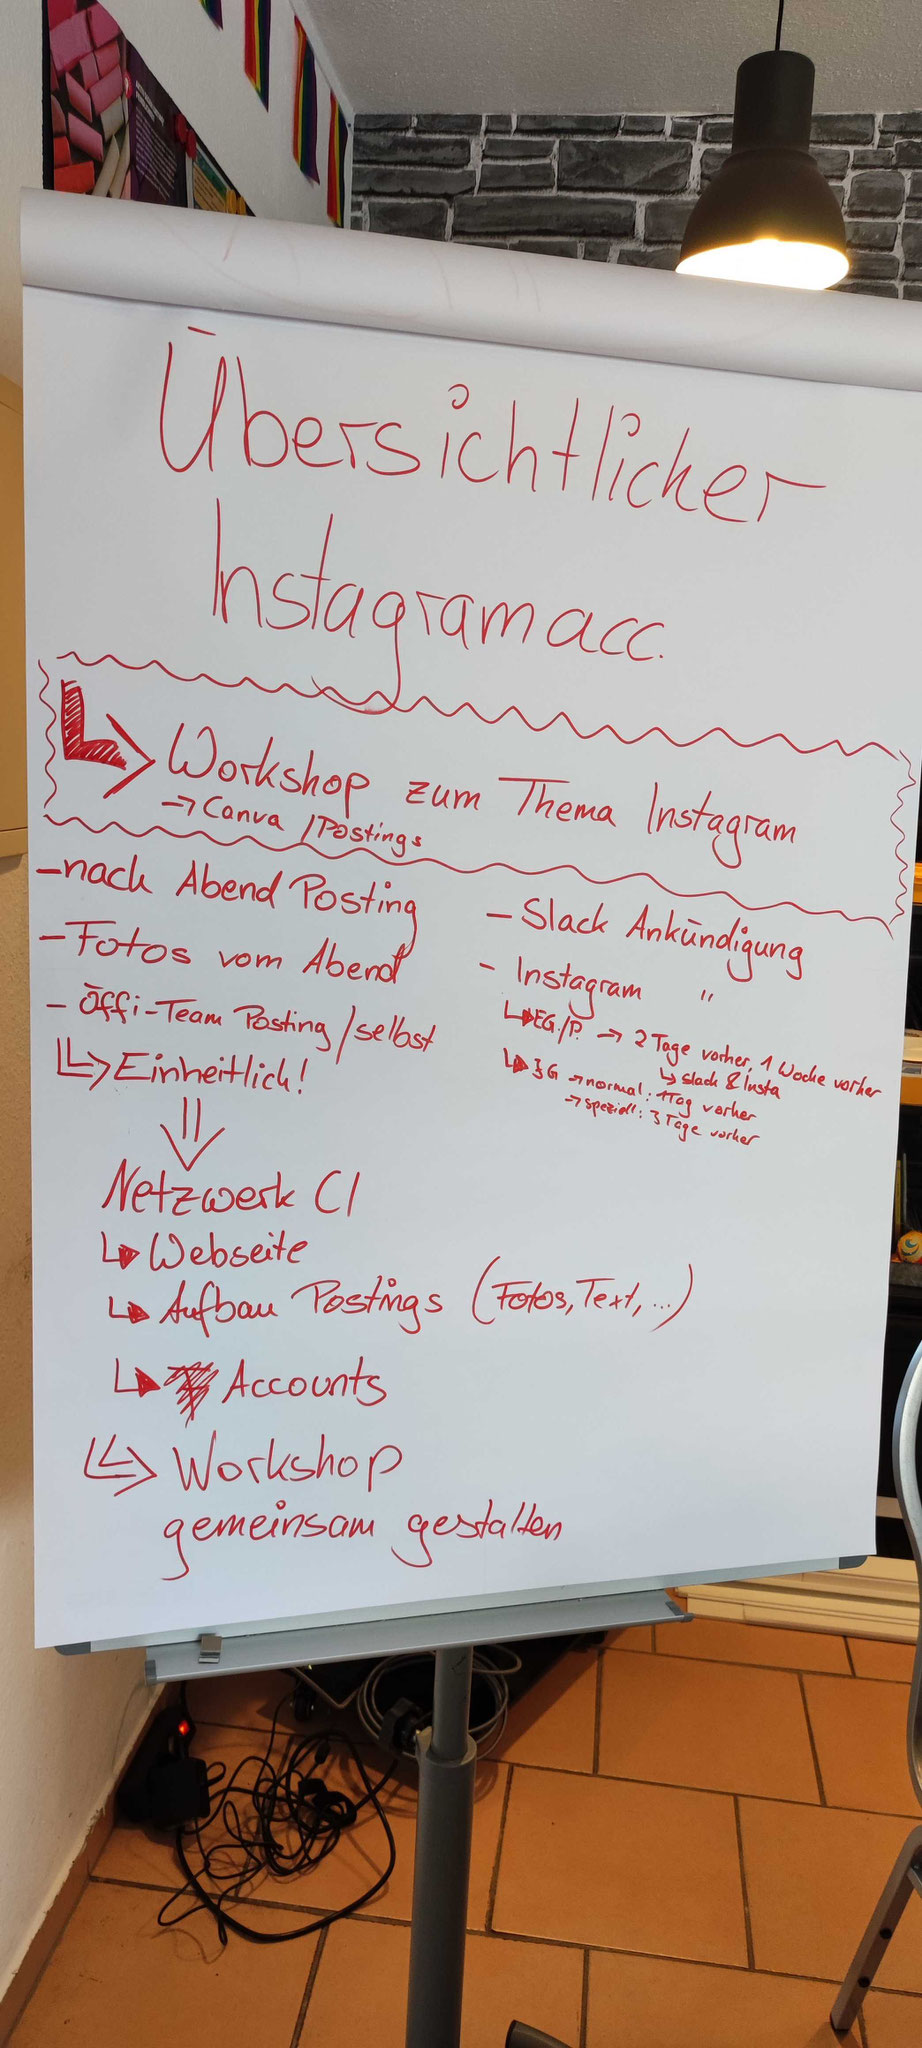 Übersichtlicher
Instagramacc.
Workshop zum Thema Instagram
→ Canva / Postings
- nach Abend Posting
- Fotos vom Abend
- Öffi-Team Posting / selbst
Einheitlich!
Netzwerk CI
Webseite
Aufbau Postings (Fotos, Text, ...)
Accounts
Workshop
gemeinsam gestalten
- Slack Ankündigung
- Instagram "
EG./P. → 2 Tage vorher, 1 Woche vorher
Slack & Insta
JG → normal: 1 Tag vorher
→ speziell: 3 Tage vorher